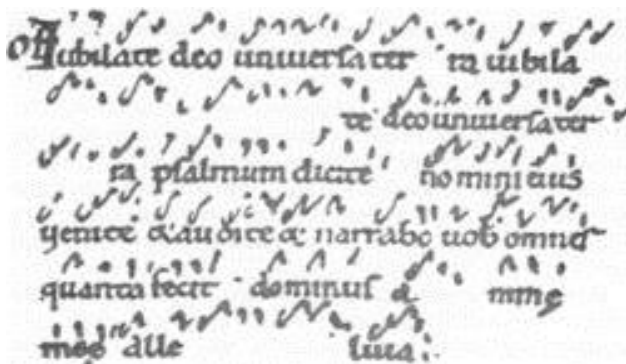 Of Iubilate deo universa ter ra iubila
te deo universa ter
ra psalmum dicite nomini eius
venite & audite & narrabo uob omnes
quanta fecit dominus a nime
mee alle luia.